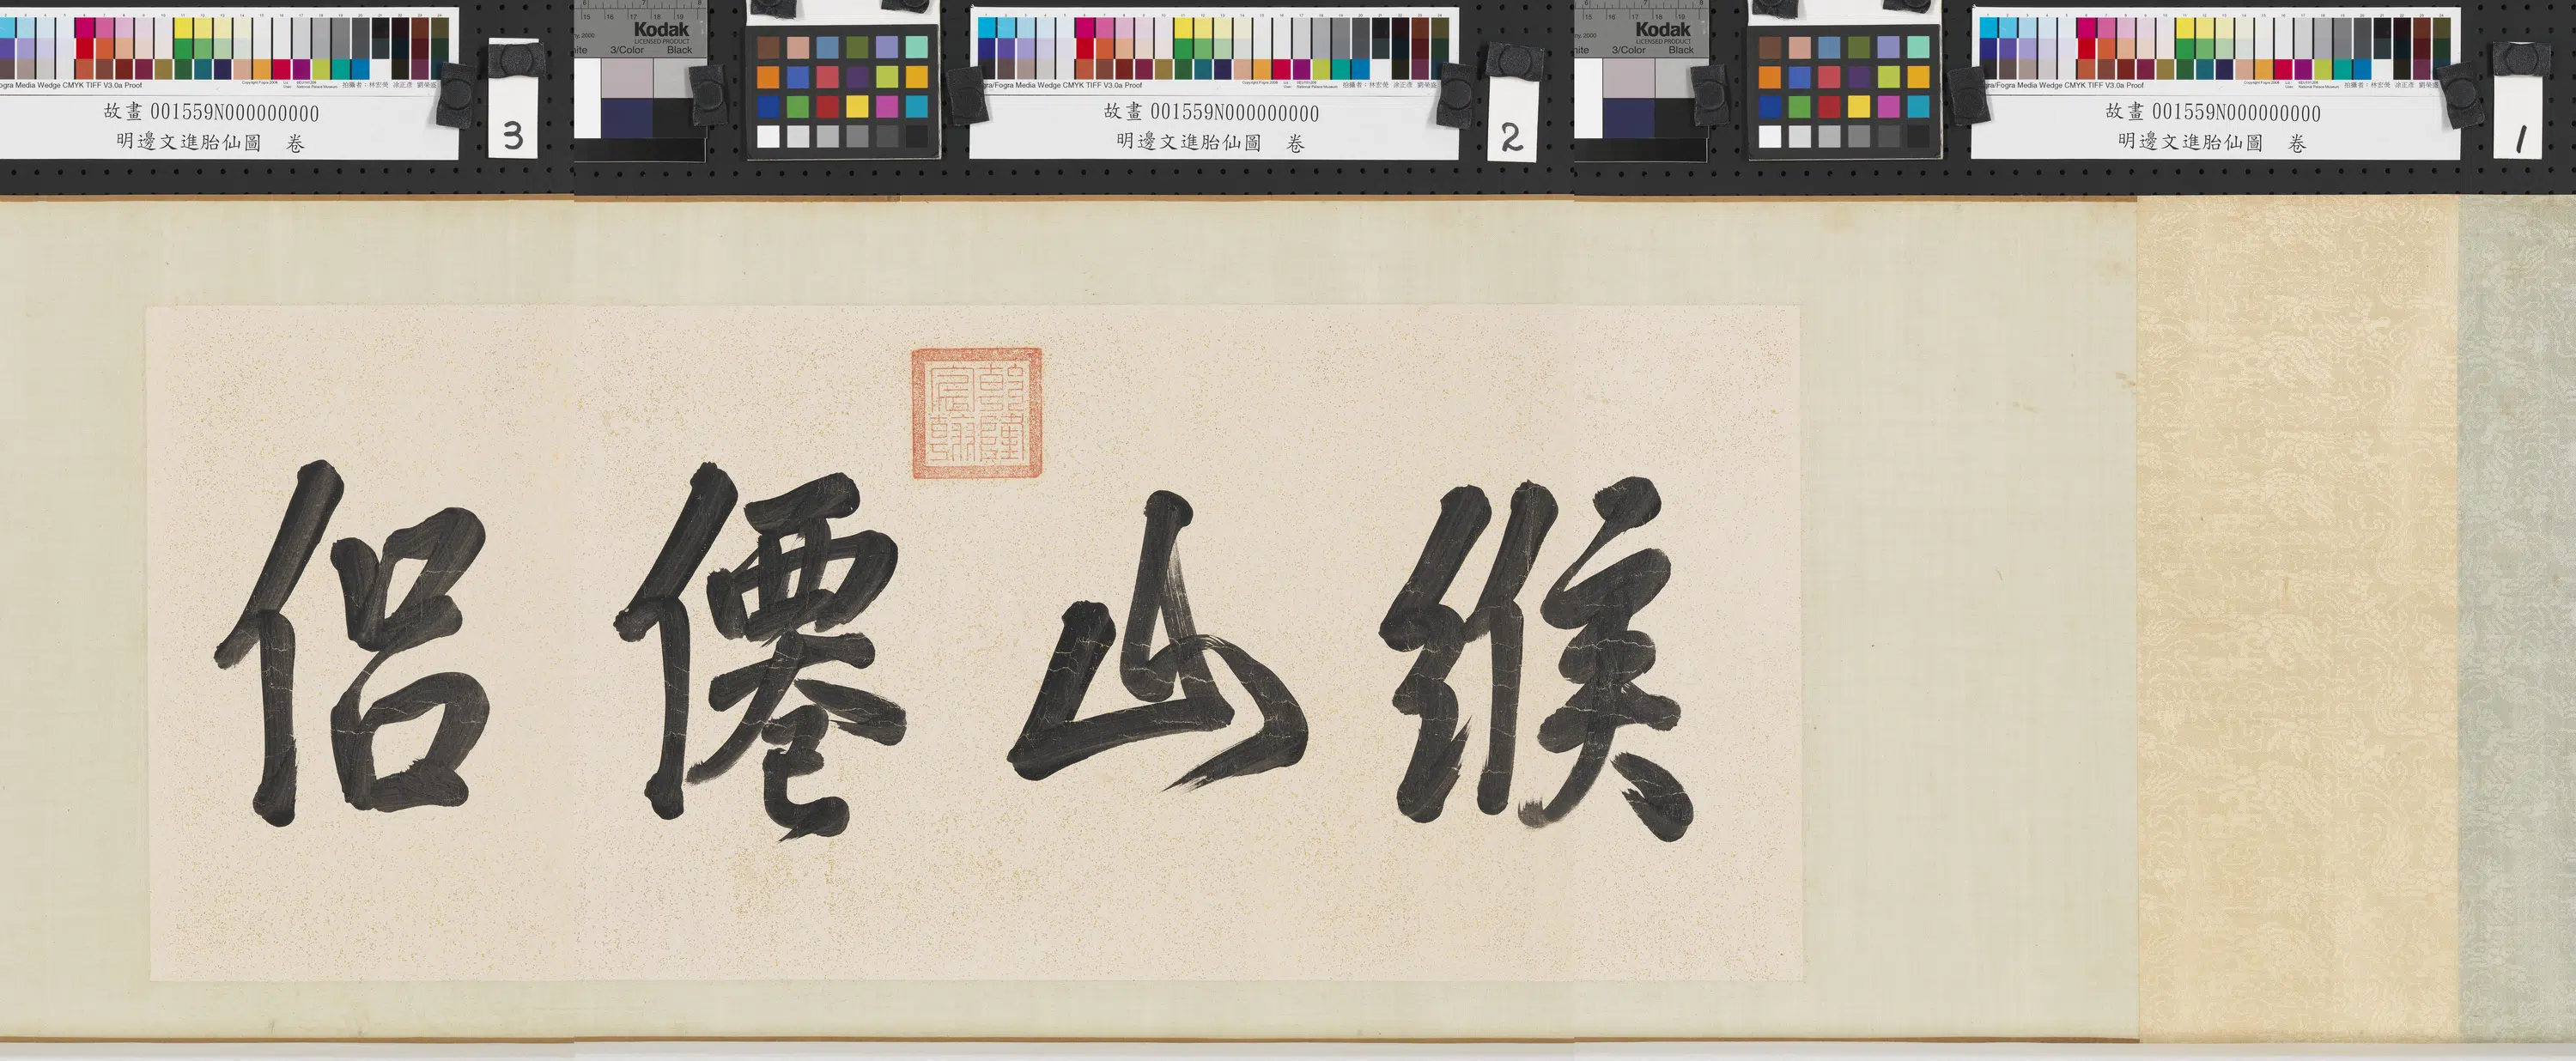 緱山僊侶
乾隆宸翰
故畫 001559N000000000
明邊文進胎仙圖 卷
1
故畫 001559N000000000
明邊文進胎仙圖 卷
2
故畫 001559N000000000
明邊文進胎仙圖 卷
3
Kodak
LICENSED PRODUCT
3/Color Black
Kodak
LICENSED PRODUCT
3/Color Black
gra/Fogra Media Wedge CMYK TIFF V3.0a Proof
gra/Fogra Media Wedge CMYK TIFF V3.0a Proof
ogra Media Wedge CMYK TIFF V3.0a Proof